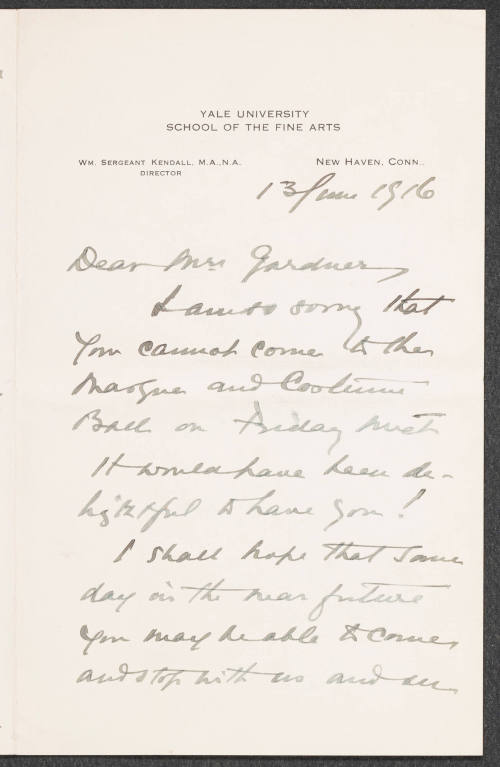 YALE UNIVERSITY
SCHOOL OF THE FINE ARTS
WM. SERGEANT KENDALL, M.A.,N.A.
DIRECTOR
NEW HAVEN, CONN.,
13 June 1916
Dear Mrs. Gardner,
I am so sorry that
you cannot come to the
Masque and Costume
Ball on Friday next
It would have been de-
lightful to have you!
I shall hope that some
day in the near future
you may be able to come
and stop with us and see